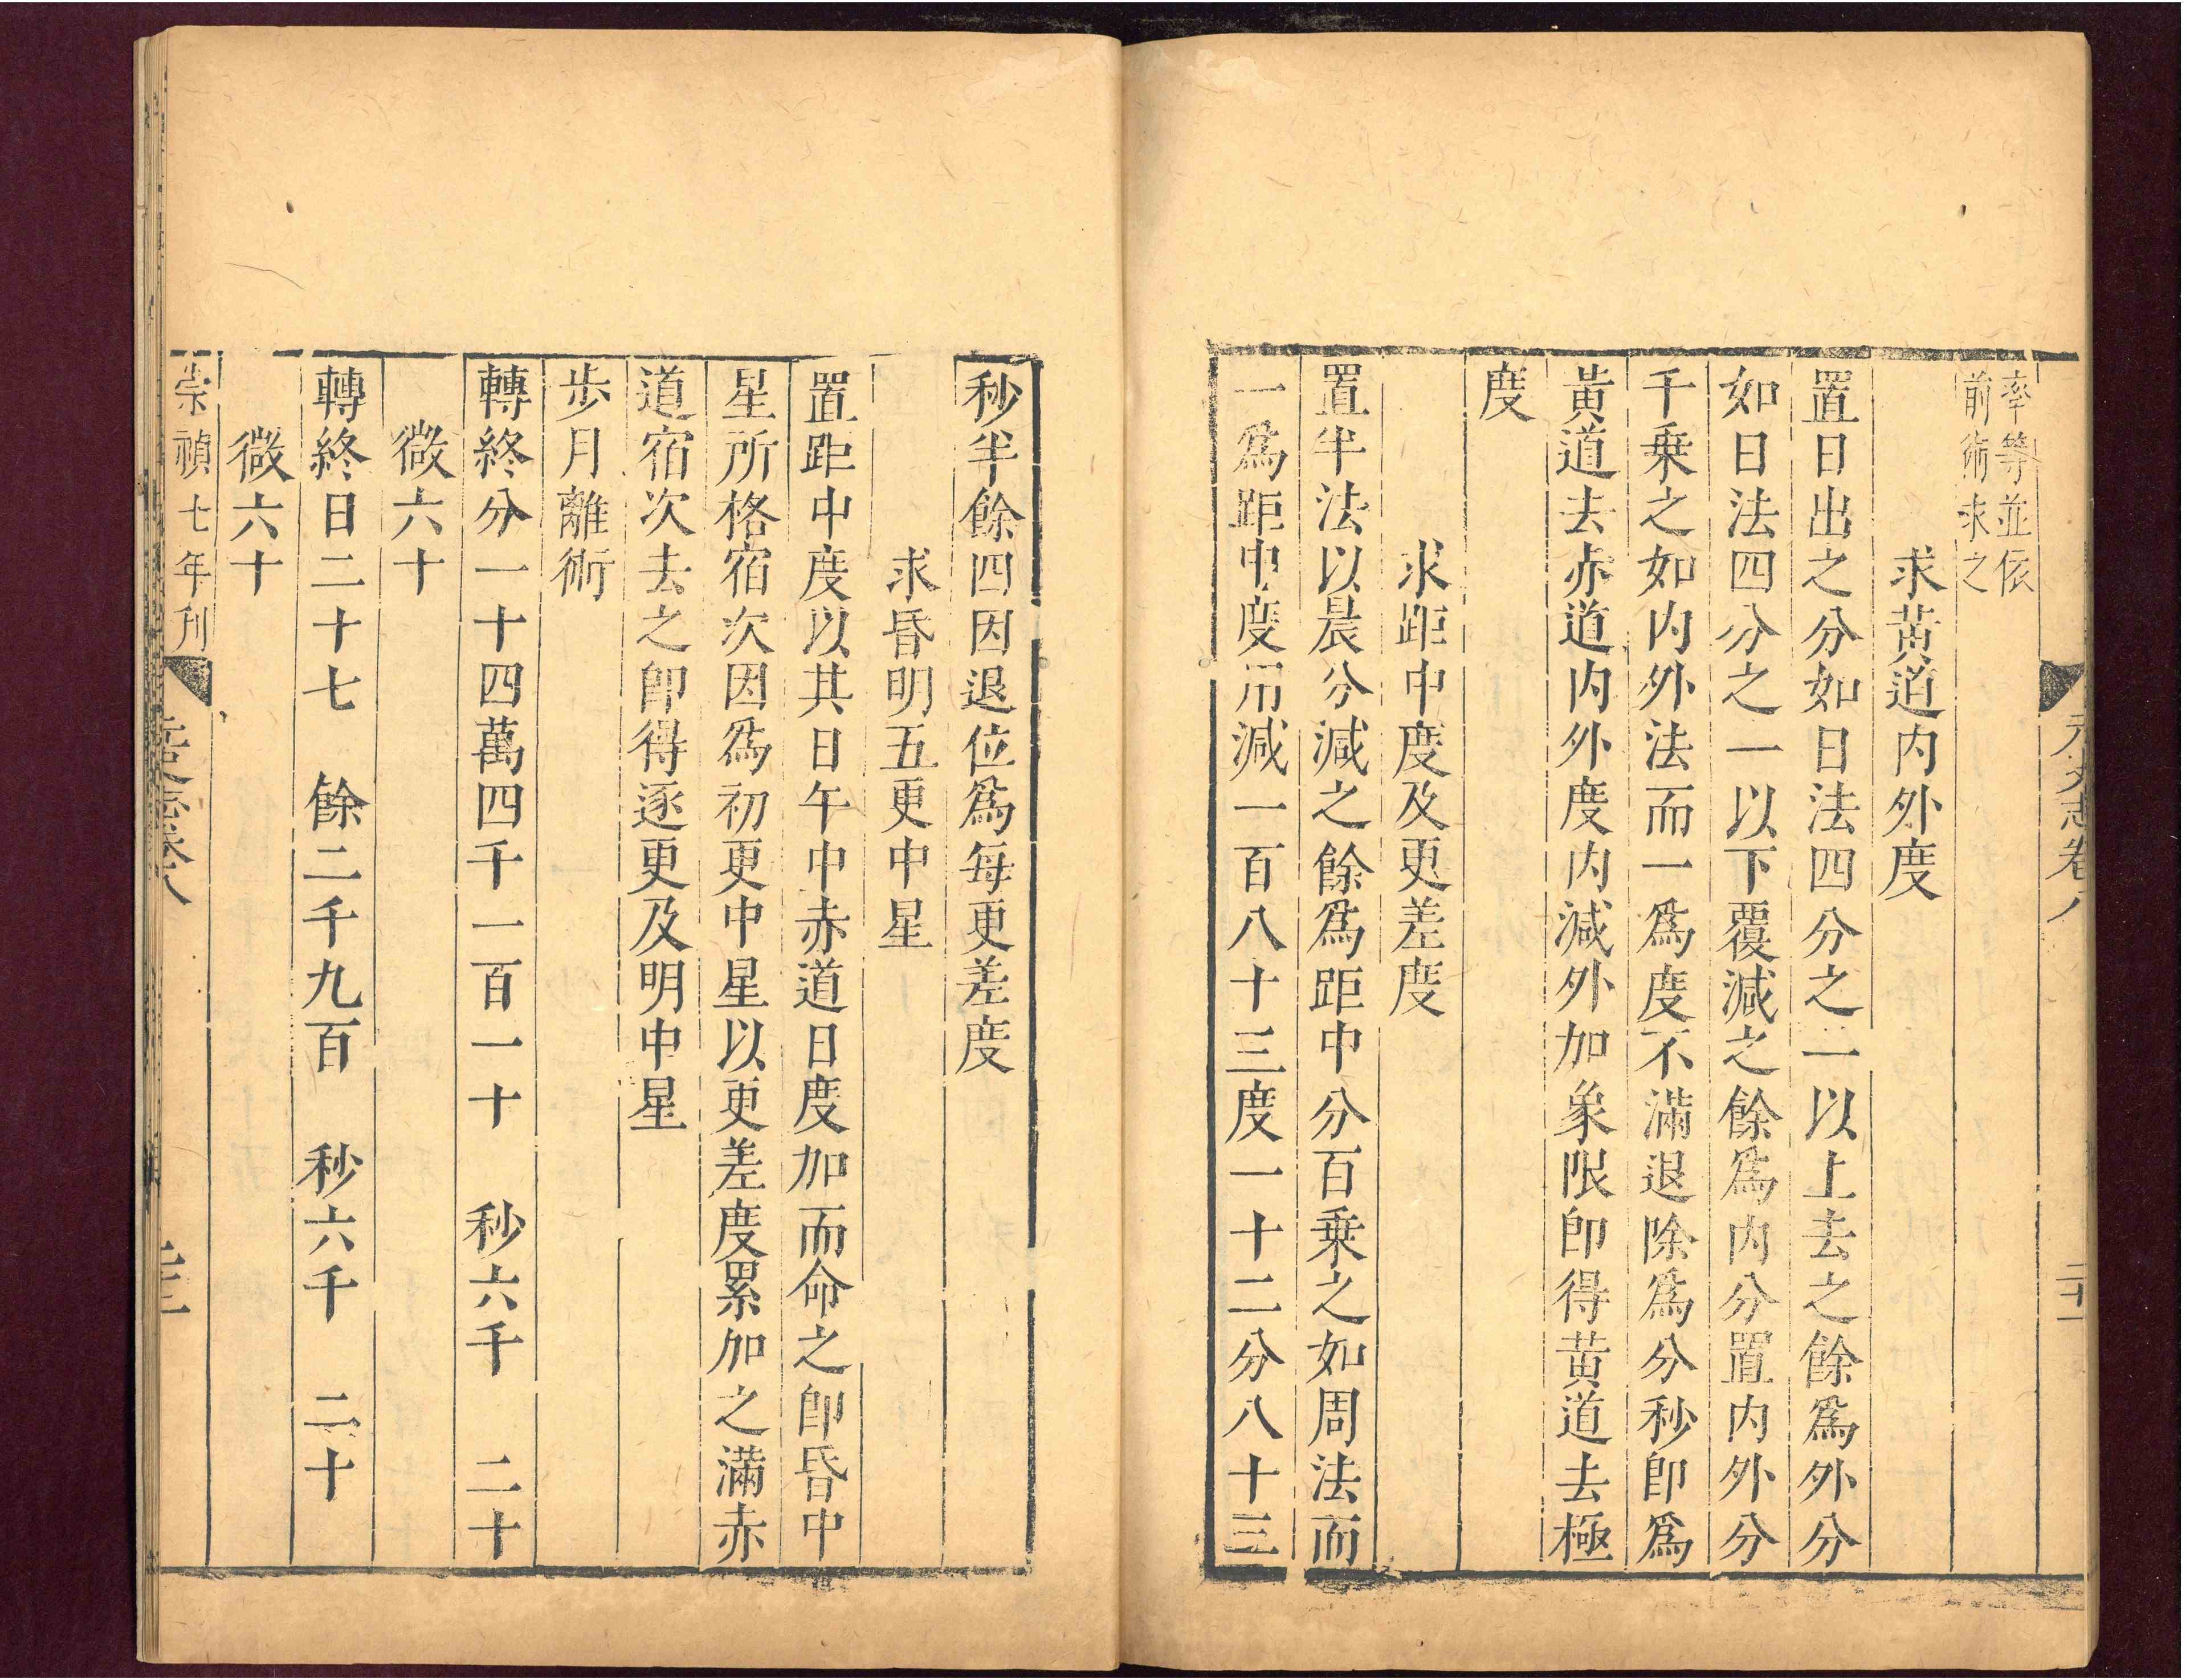 率等並依
前術求之
求黃道内外度
置日出之分如日法四分之一以上去之餘爲外分
如日法四分之一以下覆減之餘爲内分置内外分
千乗之如内外法而一爲度不滿退除爲分秒即爲
黃道去赤道内外度内減外加象限即得黃道去極
度
求距中度及更差度
置半法以晨分減之餘爲距中分百乗之如周法而
一爲距中度用減一百八十三度一十二分八十三
秒半餘四因退位爲每更差度
求昏明五更中星
置距中度以其日午中赤道日度加而命之即昏中
星所格宿次因爲初更中星以更差度累加之滿赤
道宿次去之即得逐更及明中星
歩月離術
轉終分一十四萬四千一百一十　秒六千　二十
微六十
轉終日二十七　餘二千九百　秒六千　二十
微六十
崇禎七年刋
志卷八